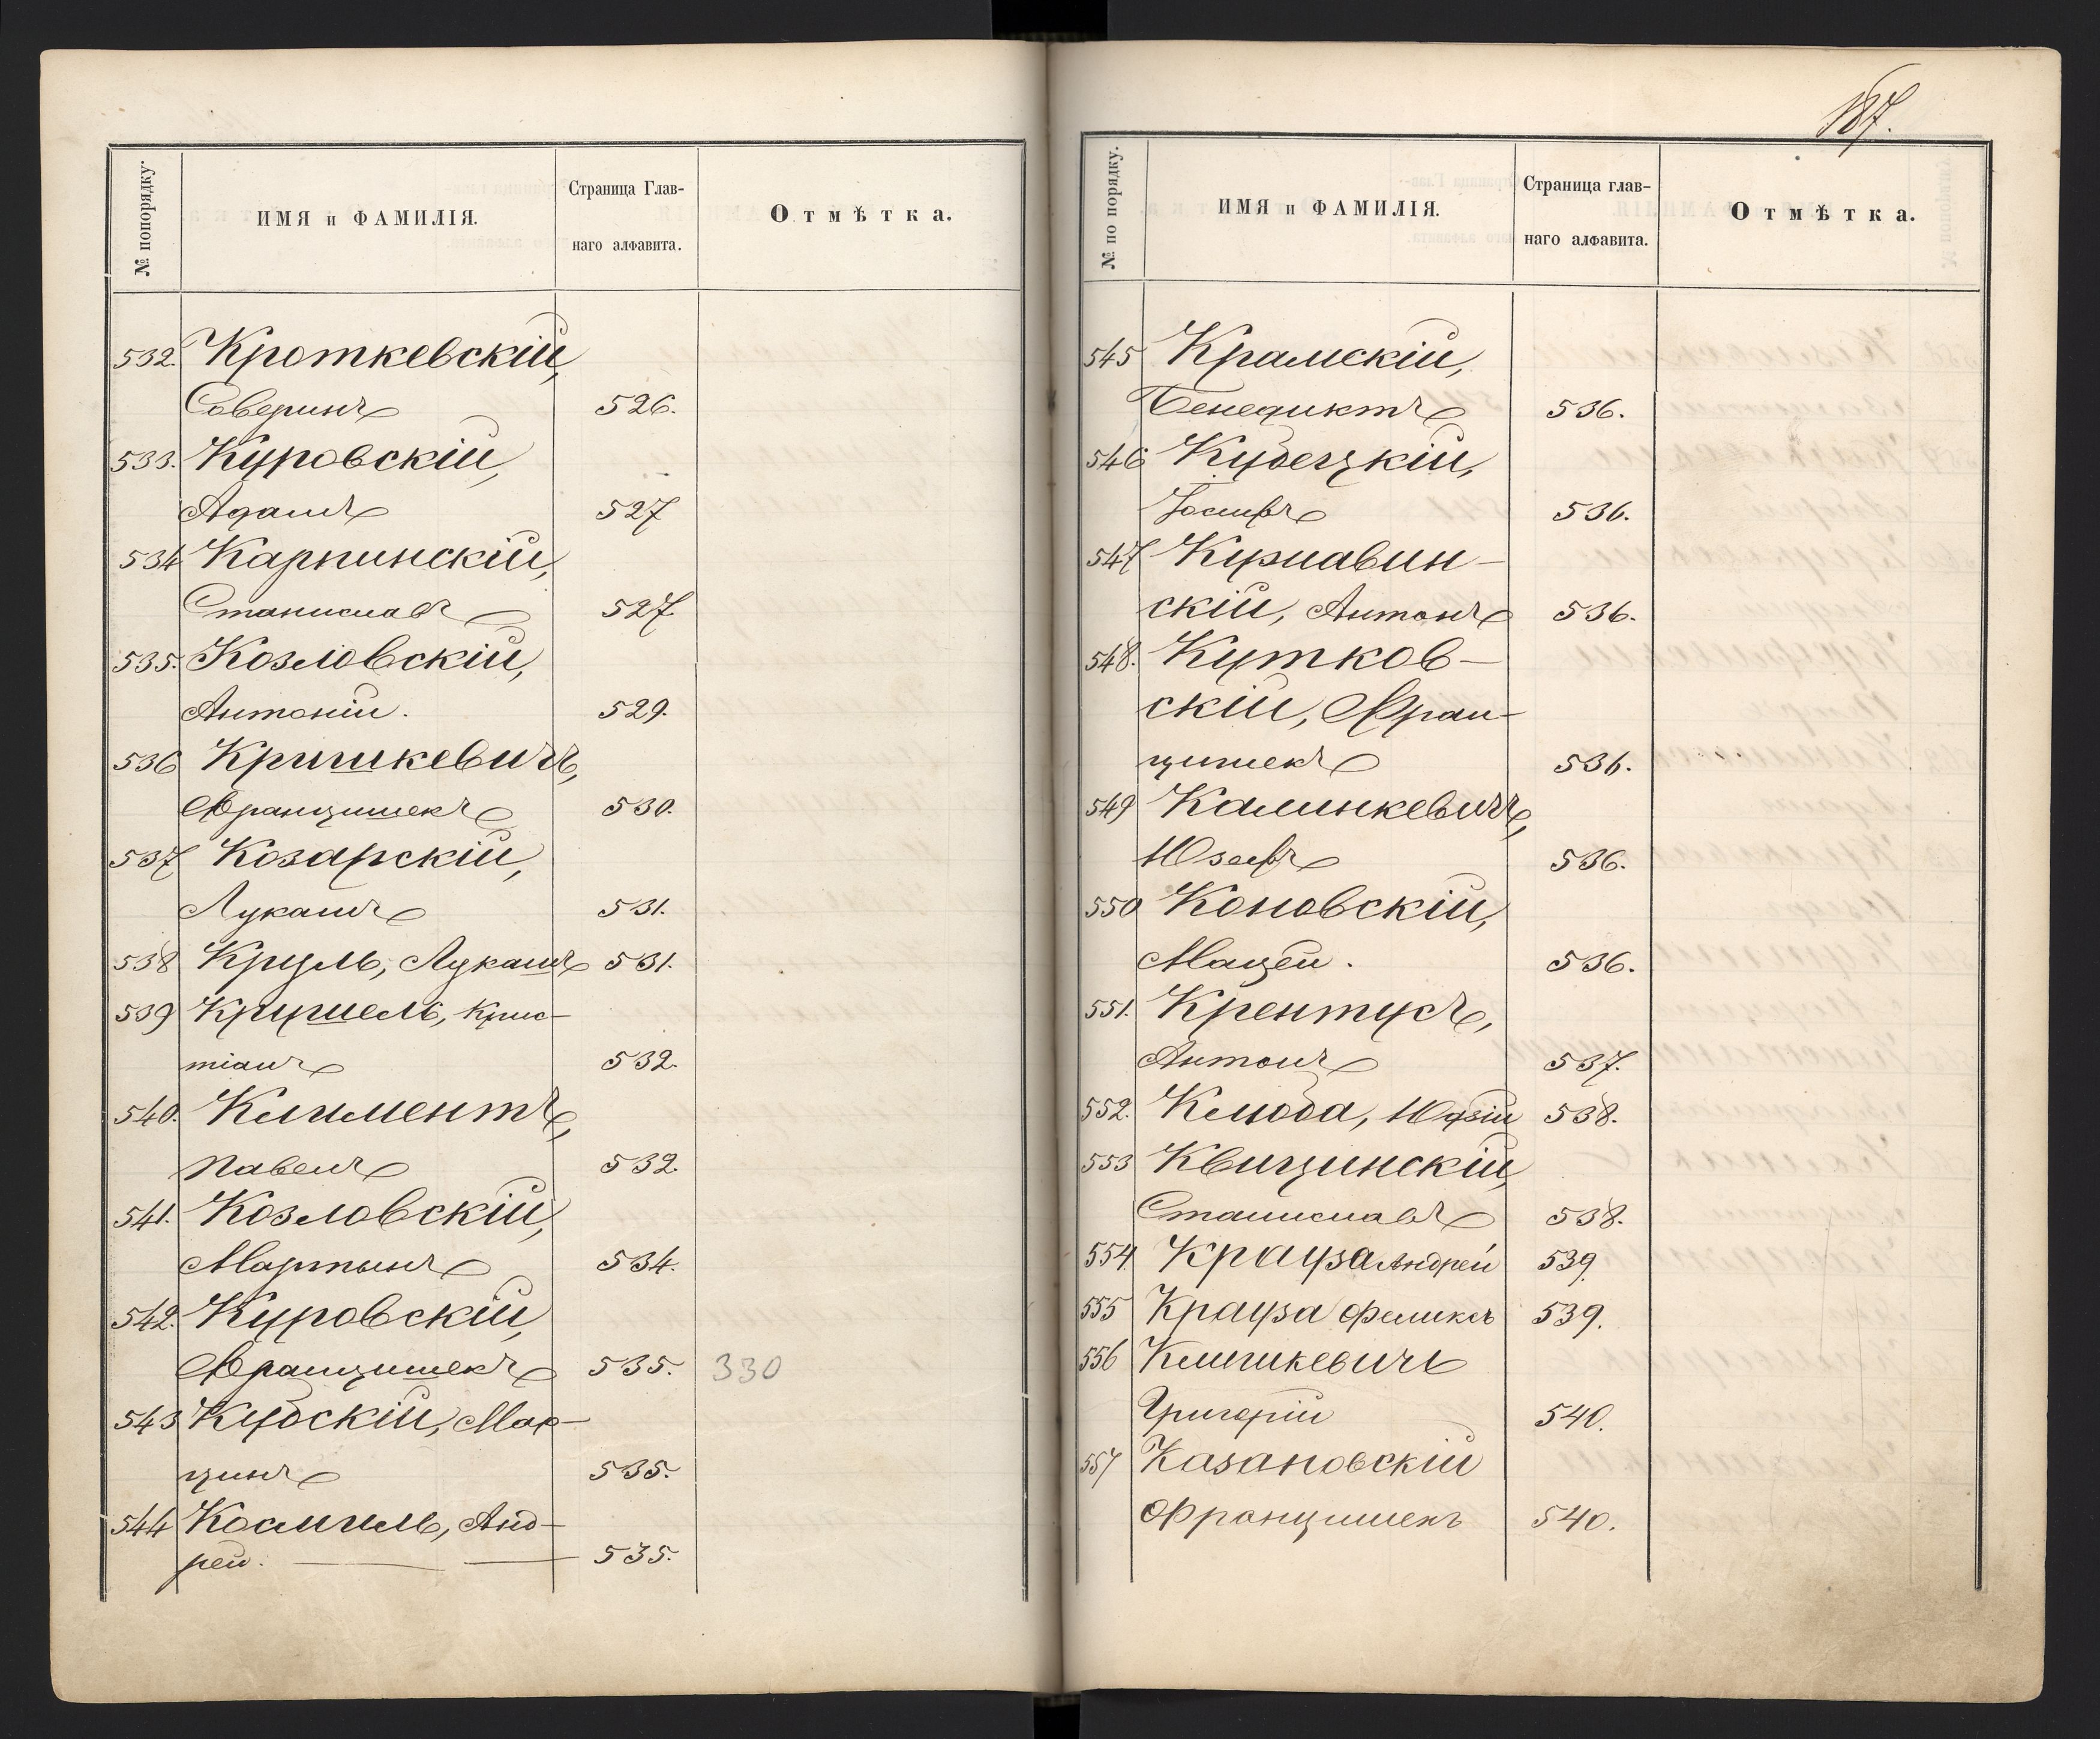 № попорядку.
ИМЯ и ФАМИЛІЯ.
Страница Глав-
наго алфавита.
Отмѣтка.
532. Кроткевскій,
Саверинъ 526.
533. Куровскій,
Адамъ 527
534 Карпинскій,
Станиславъ 527.
535. Козловскій,
Антоній. 529.
536 Кришкевичъ,
Францишекъ 530.
537 Козарскій,
Лукашъ 531.
538 Круль, Лукашъ 531.
539 Крушель, Крис-
тіанъ 532.
540. Климентъ,
Павелъ 532.
541. Козловскій,
Мартынъ 534.
542. Куровскій,
Францишекъ 535. 330
543 Кубскій, Мар-
цинъ 535.
544 Космиль, Анд-
рей. 535.
187.
№ по порядку.
ИМЯ и ФАМИЛІЯ.
Страница глав-
наго алфавита.
Отмѣтка.
545 Крамскій,
Бенедиктъ 536.
546 Кубецкій,
Іосифъ 536.
547 Курпавин-
скій, Антонъ 536.
548. Кутков-
скій, Фран-
цишекъ 536.
549 Калинкевичъ,
Юзефъ 536.
550 Коновскій,
Мацей. 536.
551. Крентусъ,
Антонъ 537.
552. Клюба, Юзфій 538.
553 Квицинскій,
Станиславъ 538.
554 Крауза Андрей 539.
555 Крауза Феликсъ 539.
556 Климкевичъ
Григорій 540.
557 Казановскій
Францишекъ 540.